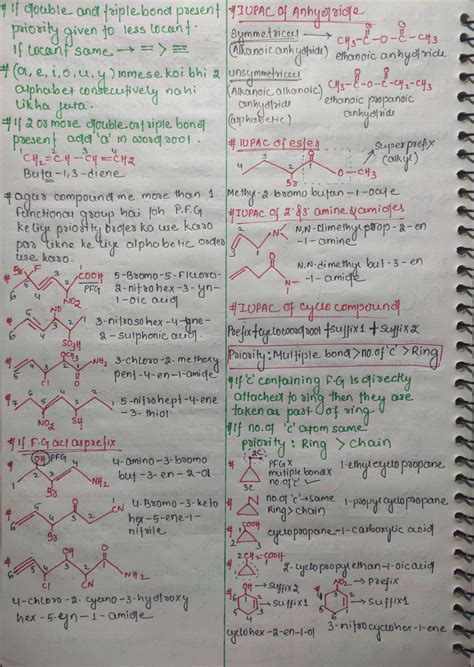 # If double and triple bond present
priority given to less locant.
If locant same → = > ≡
# (a, e, i, o, u, y) inmese koi bhi 2
alphabet consecutively nahi
likha juta.
# If 2 or more double or triple bond
present add 'a' in wordroot.
1 2 3 4
CH2=CH-CH=CH2
Buta-1,3-diene
# agar compound me more than 1
functional group hai toh P.F.G
ke liye priority order ko use karo
par likne ke liye alphabetic order
use karo.
# Br F COOH PFG NO2
5-Bromo-5-Fluoro-
2-nitrohex-3-yn-
1-oic acid
# NO SO3H
3-nitrosohex-4-yne-
2-sulphonic acid.
# OCH3 O NH2 Cl
3-chloro-2-methoxy
pent-4-en-1-amide
# NO2 SH
5-nitrohept-4-ene
-3-thiol
# If F.G act as prefix
# OH PFG NH2 Br
4-amino-3-bromo
but-3-en-2-ol
# O CN Br
4-Bromo-3-keto
hex-5-ene-1-
nitrile
# OH O NH2 Cl CN
4-chloro-2-cyano-3-hydroxy
hex-5-yn-1-amide
# IUPAC of Anhydride
Symmetrical
(Alkanoic anhydride)
CH3-C-O-C-CH3
ethanoic anhydride
unsymmetrical
(Alkanoic alkanoic)
anhydride
(alphabetic)
CH3-C-O-C-CH2-CH3
ethanoic propanoic
anhydride
# IUPAC of ester
superprefix
(alkyl)
Br O-CH3
Methyl-2-bromo butan-1-oate
# IUPAC of 2° & 3° amine & amides
N,N-dimethyl prop-2-en
-1-amine
N,N-dimethyl but-3-en
-1-amide
# IUPAC of cyclo compound
Prefix+cyclowordroot+suffix1+suffix2
Priority: Multiple bond > no. of 'c' > Ring
# If 'c' containing F.G is directly
attached to ring then they are
taken as part of ring.
# If no. of 'c' atom same
priority: Ring > chain
# 2C 3C
PFG x
multiple bond x
no. of 'c' ✓
1-ethyl cyclopropane
# no. of 'c' → same
Ring > chain
1-propyl cyclopropane
# COOH
cyclopropane-1-carboxylic acid
# CH2-COOH
2-cyclopropyl ethan-1-oic acid
# OH → suffix2
→ suffix1
cyclohex-2-en-1-ol
# NO2 → Prefix
→ suffix1
3-nitrocyclohex-1-ene